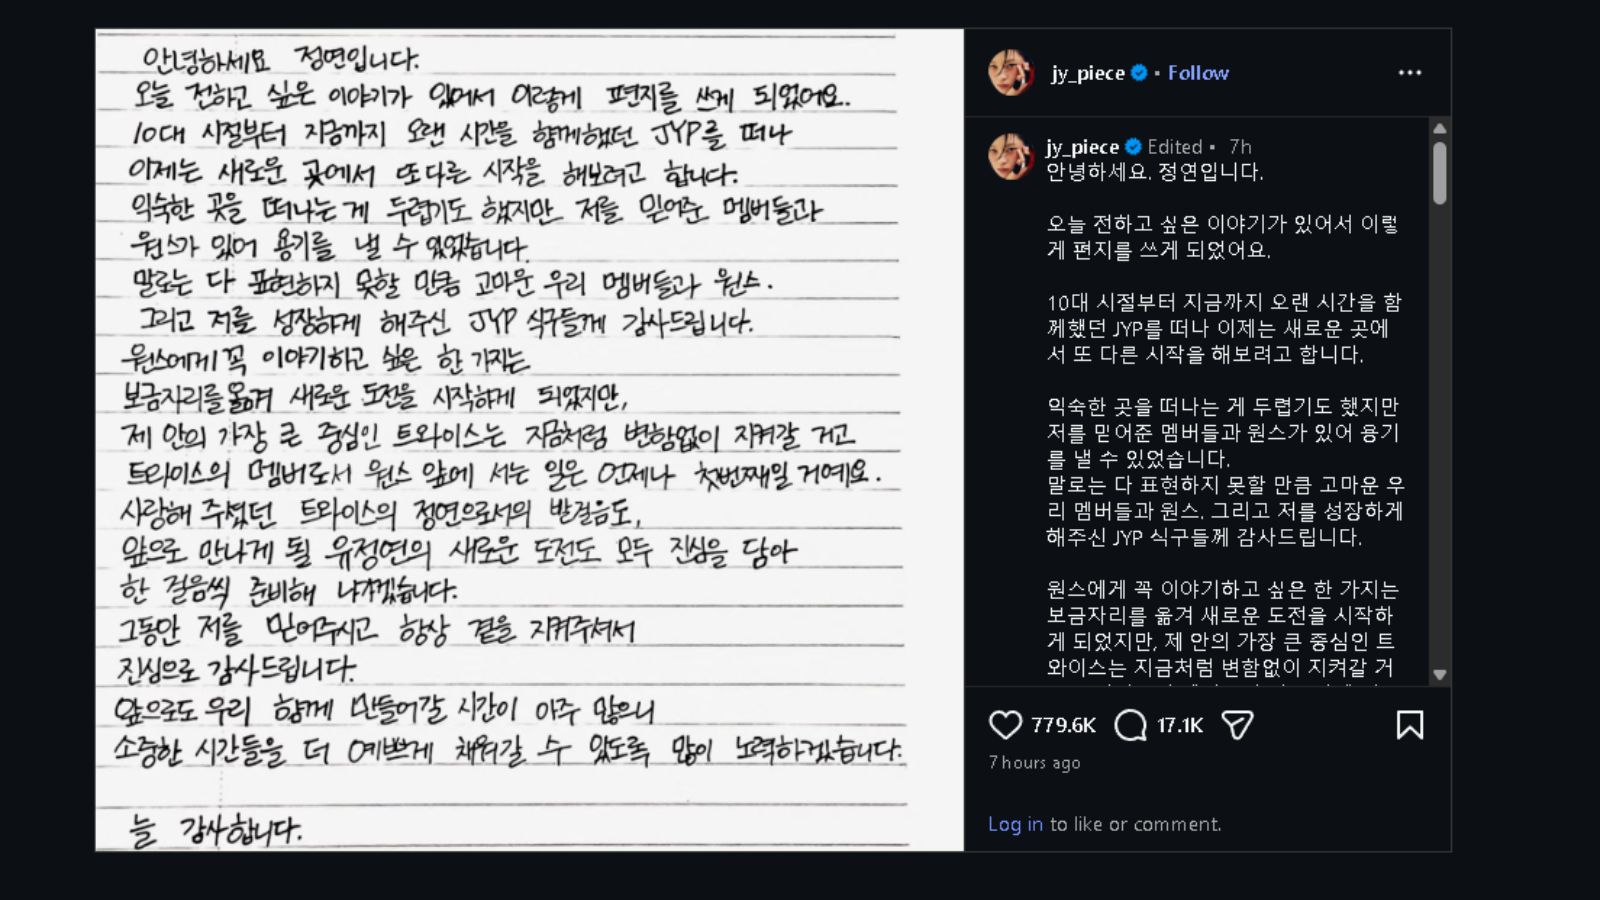 안녕하세요 정연입니다.
오늘 전하고 싶은 이야기가 있어서 이렇게 편지를 쓰게 되었어요.
10대 시절부터 지금까지 오랜 시간을 함께했던 JYP를 떠나
이제는 새로운 곳에서 또 다른 시작을 해보려고 합니다.
익숙한 곳을 떠나는 게 두렵기도 했지만 저를 믿어준 멤버들과
원스가 있어 용기를 낼 수 있었습니다.
말로는 다 표현하지 못할 만큼 고마운 우리 멤버들과 원스.
그리고 저를 성장하게 해주신 JYP 식구들께 감사드립니다.
원스에게 꼭 이야기하고 싶은 한 가지는
보금자리를 옮겨 새로운 도전을 시작하게 되었지만,
제 안의 가장 큰 중심인 트와이스는 지금처럼 변함없이 지켜갈 거고
트와이스의 멤버로서 원스 앞에 서는 일은 언제나 첫번째일 거예요.
사랑해 주셨던 트와이스의 정연으로서의 발걸음도,
앞으로 만나게 될 유정연의 새로운 도전도 모두 진심을 담아
한 걸음씩 준비해 나가겠습니다.
그동안 저를 믿어주시고 항상 곁을 지켜주셔서
진심으로 감사드립니다.
앞으로도 우리 함께 만들어갈 시간이 아주 많으니
소중한 시간들을 더 예쁘게 채워갈 수 있도록 많이 노력하겠습니다.
늘 감사합니다.
jy_piece • Follow
jy_piece Edited • 7h
안녕하세요. 정연입니다.
오늘 전하고 싶은 이야기가 있어서 이렇
게 편지를 쓰게 되었어요.
10대 시절부터 지금까지 오랜 시간을 함
께했던 JYP를 떠나 이제는 새로운 곳에
서 또 다른 시작을 해보려고 합니다.
익숙한 곳을 떠나는 게 두렵기도 했지만
저를 믿어준 멤버들과 원스가 있어 용기
를 낼 수 있었습니다.
말로는 다 표현하지 못할 만큼 고마운 우
리 멤버들과 원스. 그리고 저를 성장하게
해주신 JYP 식구들께 감사드립니다.
원스에게 꼭 이야기하고 싶은 한 가지는
보금자리를 옮겨 새로운 도전을 시작하
게 되었지만, 제 안의 가장 큰 중심인 트
와이스는 지금처럼 변함없이 지켜갈 거
779.6K 17.1K
7 hours ago
Log in to like or comment.